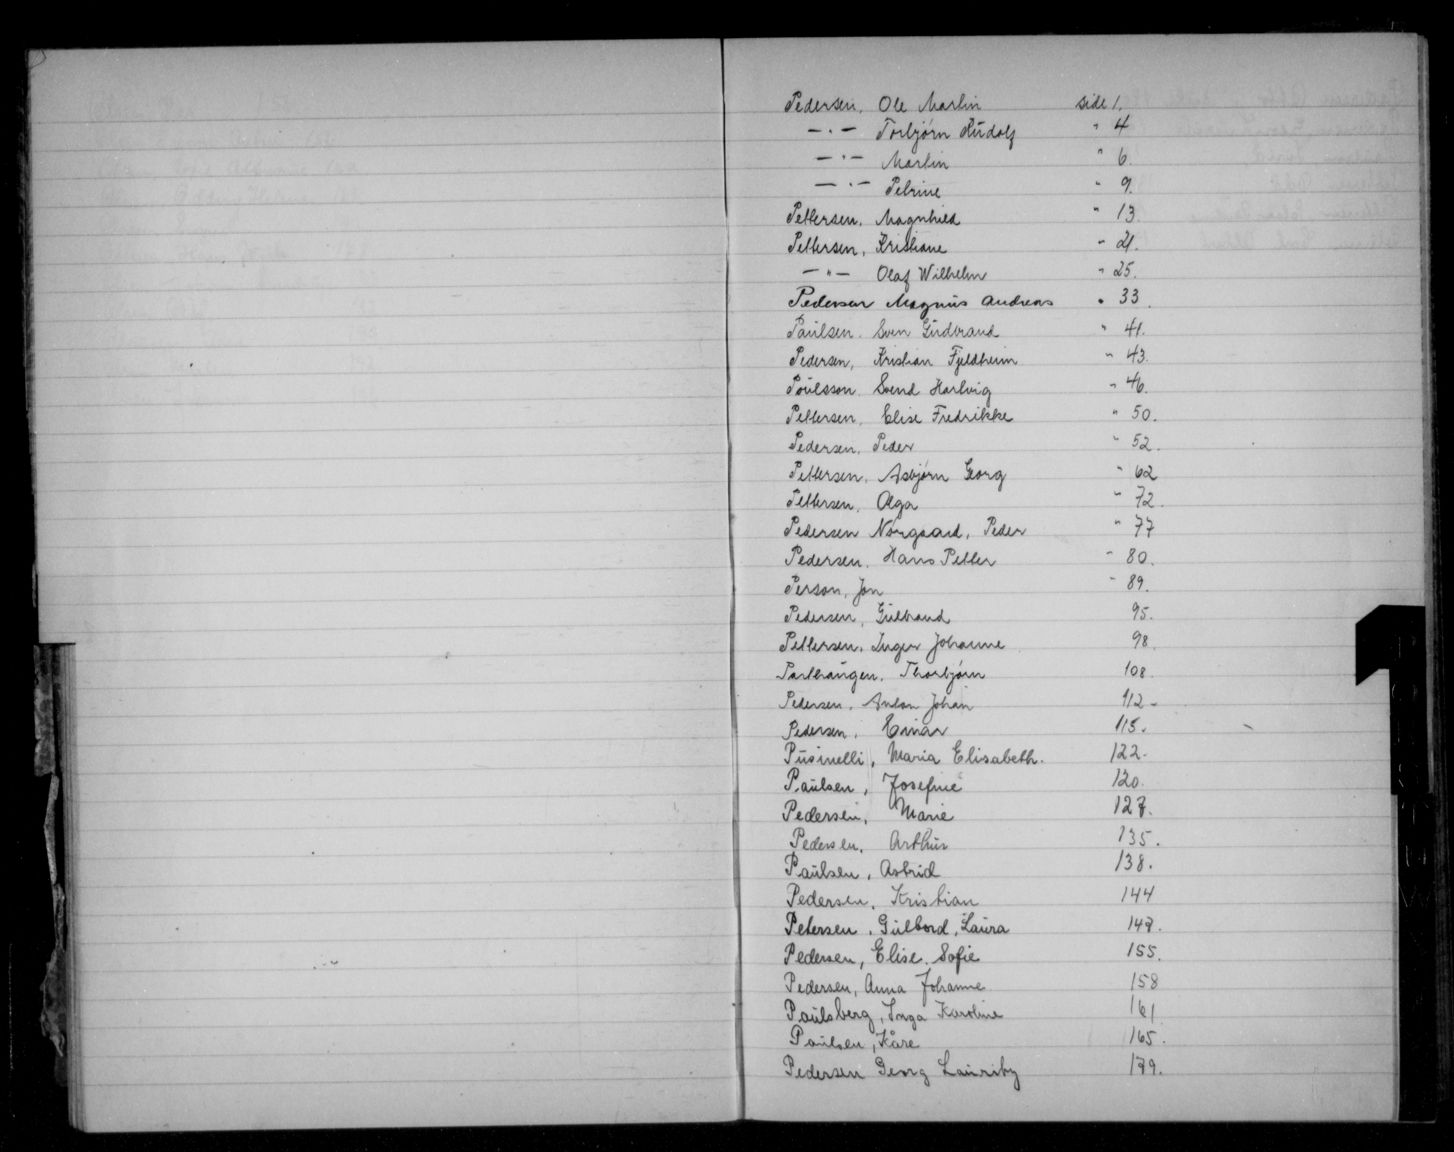 Pedersen, Ole Martin side 1.
—·— Torbjørn Rudolf " 4
—·— Martin " 6.
—·— Petrine " 9.
Pettersen, Magnhild " 13.
Pettersen, Kristiane " 21.
—"— Olaf Wilhelm " 25.
Pedersen Magnus Andreas " 33.
Paulsen. Even Gudbrand " 41.
Pedersen, Kristian Fjeldheim " 43.
Poulsson. Svend Hartvig " 46.
Pettersen, Elise Fredrikke " 50.
Pedersen, Peder " 52.
Pettersen, Asbjørn Georg " 62
Pettersen, Olga " 72.
Pedersen Nørgaard, Peder " 77
Pedersen, Hans Petter " 80.
Person, Jon " 89.
Pedersen, Gulbrand 95.
Pettersen, Inger Johanne 98.
Parthaugen, Thorbjørn 108.
Pedersen, Anton Johan 112-
Pedersen, Einar 115.
Pusinelli, Maria Elisabeth. 122.
Paulsen, Josefine 120.
Pedersen, Marie 127.
Pedersen, Arthur 135.
Paulsen, Astrid 138.
Pedersen, Kristian 144
Petersen, Gulbord, Laura 147.
Pedersen, Elise. Sofie 155.
Pedersen, Anna Johanne 158
Paulsberg, Inga Karoline 161
Paulsen, Kåre 165.
Pedersen Georg 179.